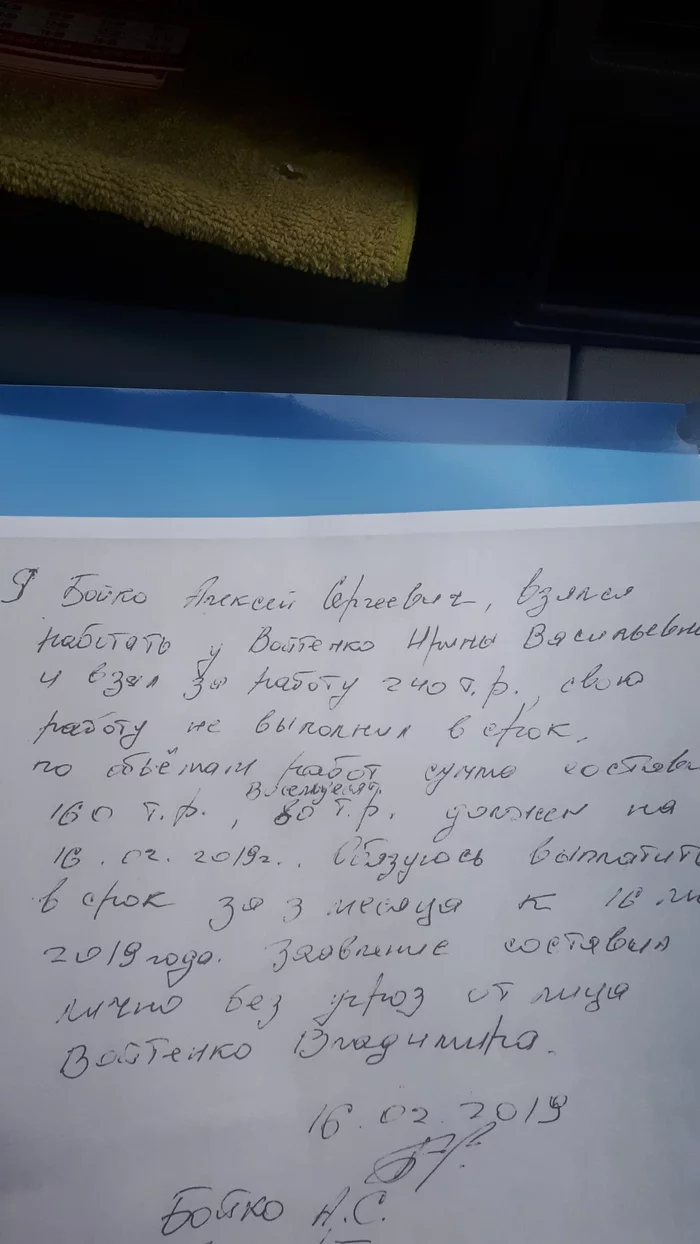 Я Бойко Алексей Сергеевич, взялся
работать у Войтенко Ирины Васильевн
и взял за работу 240 т.р., свою
работу не выполнил в срок,
по объёмам работ сумма состави
Восемдесят
160 т.р., 80 т.р. должен на
16.02.2019г.. Обязуюсь выплатить
в срок за 3 месяца к 16 
2019 года. Заявление составил
лично без угроз от лица
Войтенко Владимира.
16.02.2019
Бойко А.С.